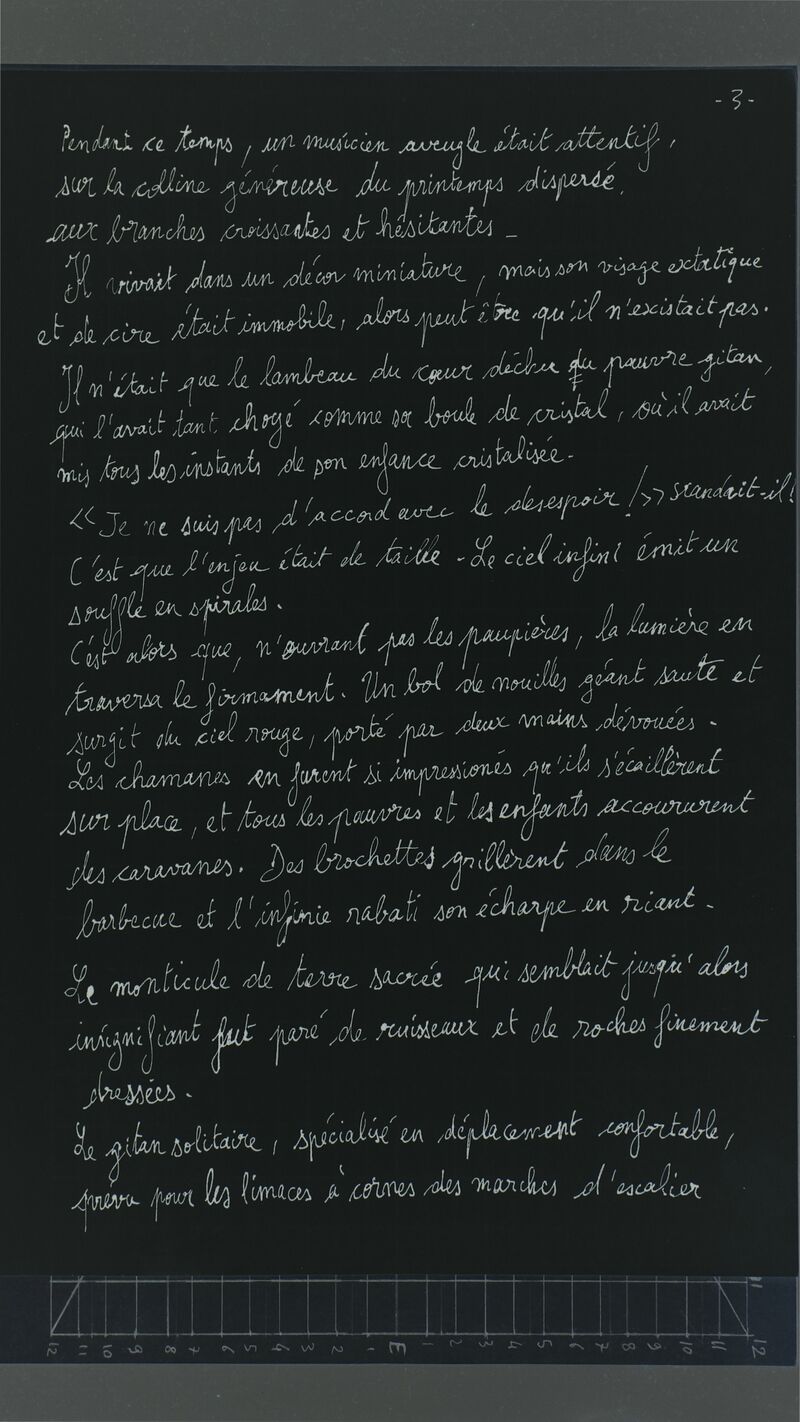 -3-
Pendant ce temps, un musicien aveugle était attentif,
sur la colline généreuse du printemps dispersé,
aux branches croissantes et hésitantes _
Il vivait dans un décor miniature, mais son visage extatique
et de cire était immobile, alors peut être qu'il n'existait pas.
Il n'était que le lambeau du cœur déchu du pauvre gitan,
qui l'avait tant choyé comme sa boule de cristal, où il avait
mis tous les instants de son enfance cristalisée.
<< Je ne suis pas d'accord avec le desespoir !>> scandait-il!
C'est que l'enjeu était de taille - Le ciel infini émit un
souffle en spirales.
C'est alors que, n'ouvrant pas les paupières, la lumière en
traversa le firmament. Un bol de nouilles géant saute et
surgit du ciel rouge, porté par deux mains dévouées -
Les chamanes en furent si impressionés qu'ils s'écaillèrent
sur place, et tous les pauvres et les enfants accoururent
des caravanes. Des brochettes grillèrent dans le
barbecue et l'infinie rabati son écharpe en riant -
Le monticule de terre sacrée qui semblait jusqu'alors
insignifiant fut paré de ruisseaux et de roches finement
dressées.
Le gitan solitaire, spécialisé en déplacement confortable,
prévu pour les limaces à cornes des marches d'escalier
12 11 10 9 8 7 6 5 4 3 2 1 E 1 2 3 4 5 6 7 8 9 10 11 12